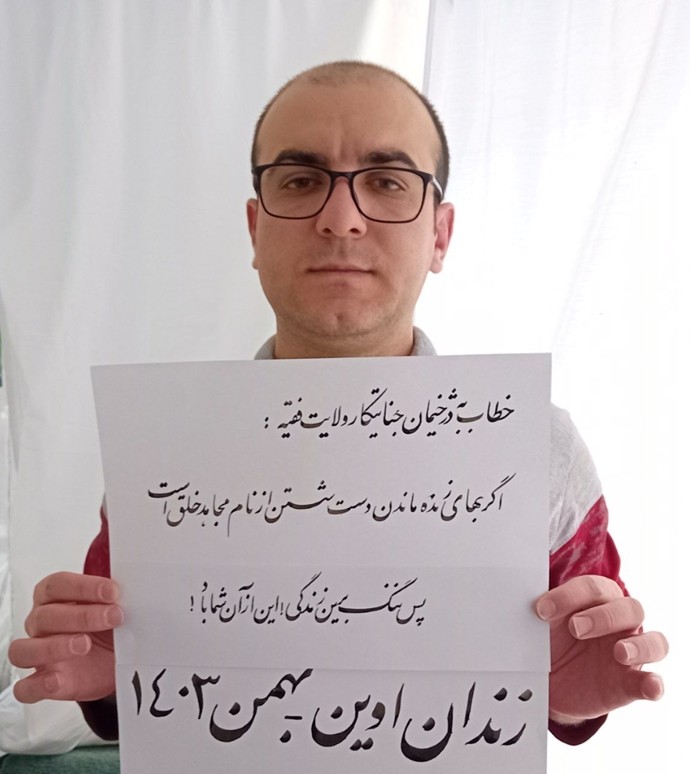 خطاب به دژخیمان جنایتکار ولایت فقیه :
اگر بهای زنده ماندن دست شستن از نام مجاهد خلق است
پس ننگ بر این زندگی! این از آن شما باد !
زندان اوین - بهمن ۱۴۰۳